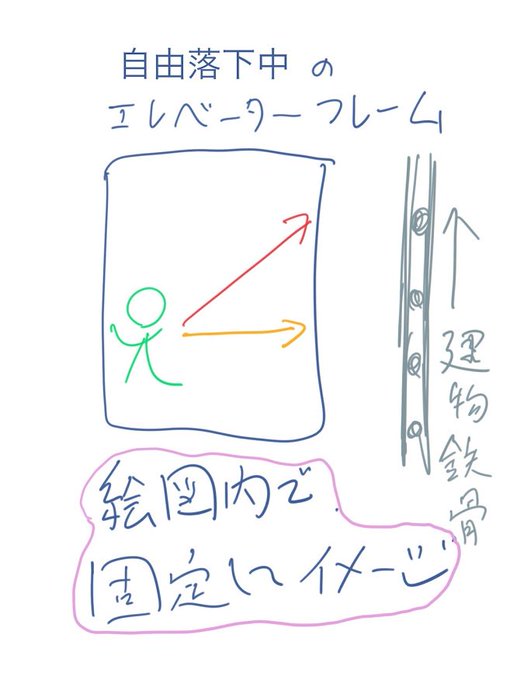 自由落下中 の
エレベーターフレーム
↑建物鉄骨
絵図内で
固定してイメージ